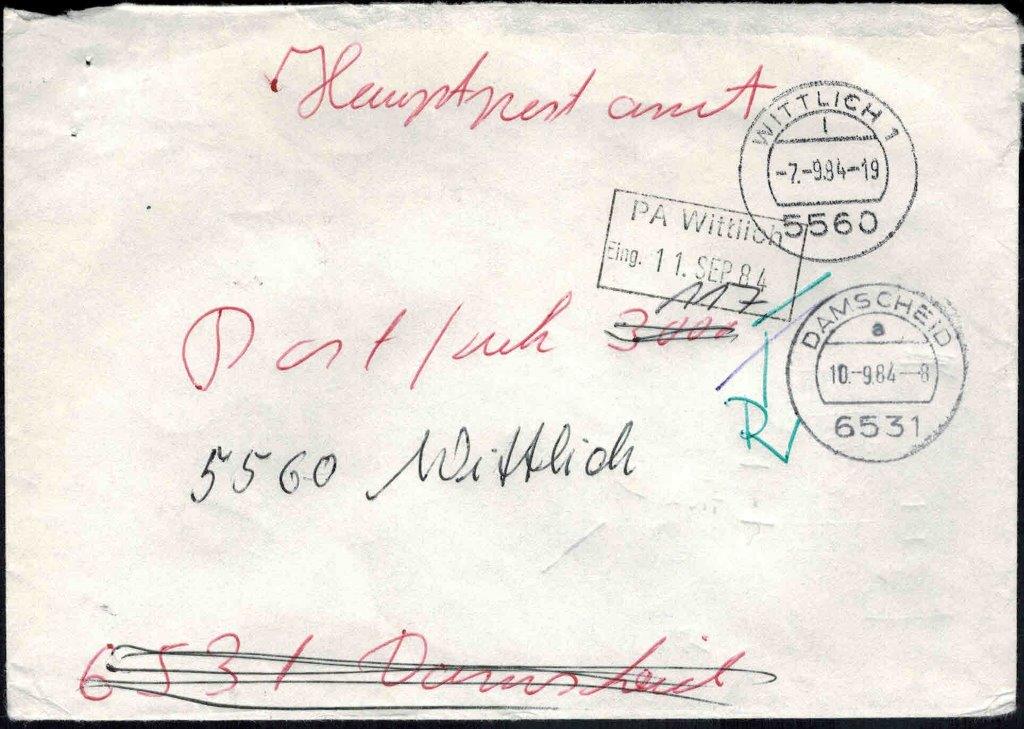 Hauptpostamt
WITTLICH 1
l
-7.-9.84-19
5560
PA Wittlich
Eing. 11. SEP. 84
117
Postfach 3000
DAMSCHEID
a
10.-9.84-8
6531
R
5560 Wittlich
6531 Damscheid